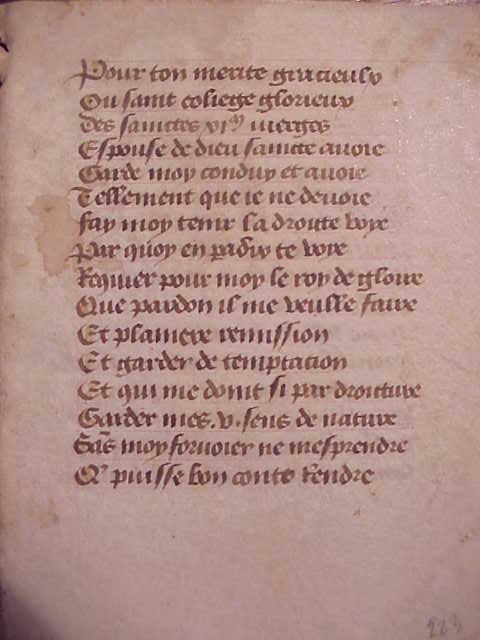 Pour ton merite gracieulx
Ou saint coliege glorieux
Des sainctes xiᵐ vierges
Espouse de dieu saincte avoie
Garde moy conduy et avoie
Tellement que ie ne devoie
fay moy tenir la droitte voye
Par quoy en padis te voye
Requier pour moy le roy de gloire
Que pardon il me veulle faire
Et planiere remission
Et garder de temptacion
Et qui me donit si par droiture
Garder mes .v. sens de nature
Sās moy forvoier ne mesprendre
Qͬ puisse bon conte Rendre